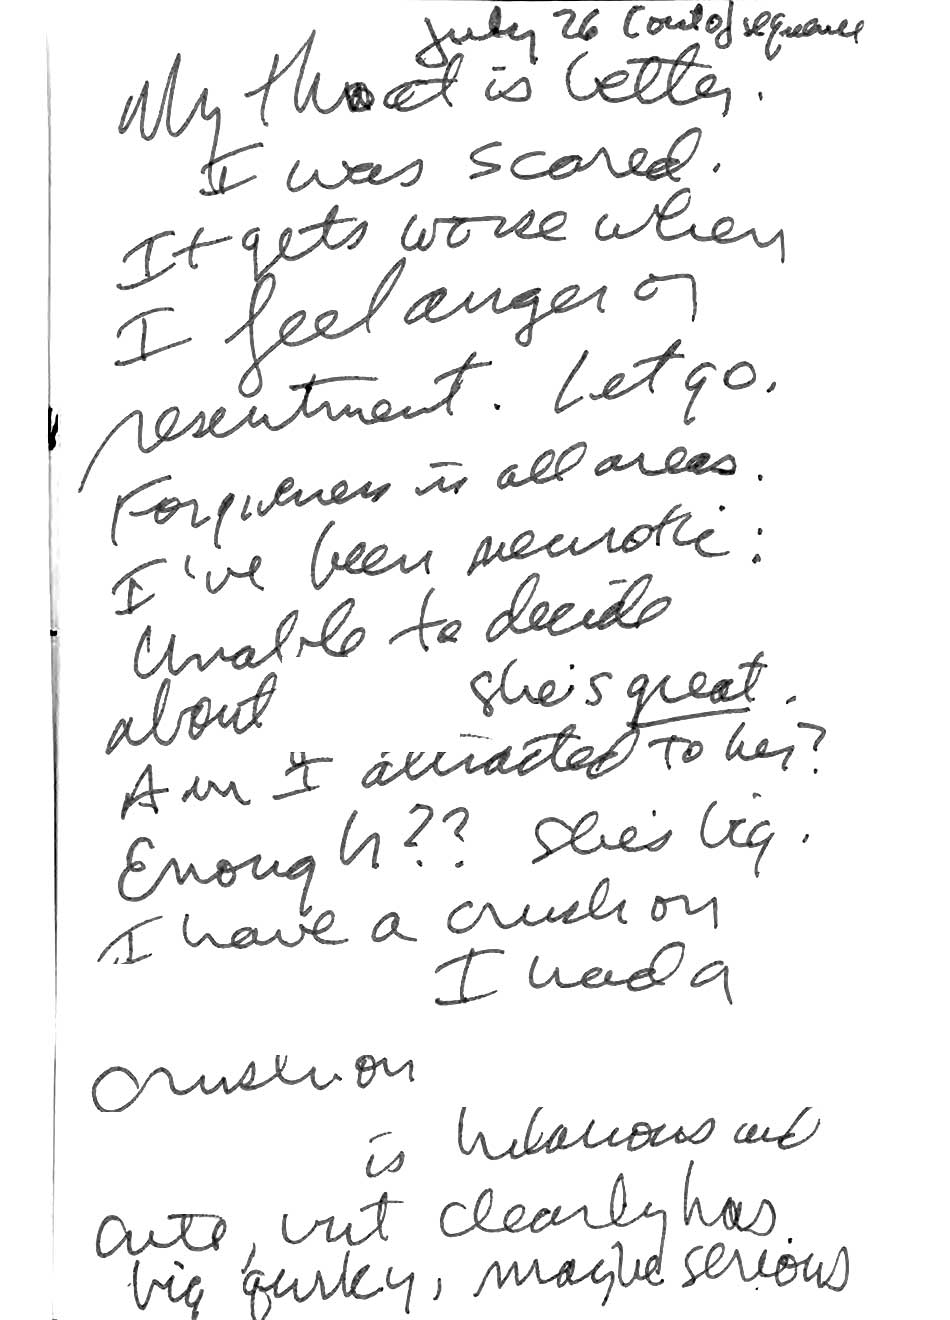 July 26 (out of sequence
My throat is better.
I was scared.
It gets worse when
I feel anger or
resentment. Let go.
Forgiveness in all areas.
I've been neurotic:
Unable to decide
about she's great.
Am I attracted to her?
Enough?? She's big.
I have a crush on
I had a
crush on
is hilarious and
cute, but clearly has
big quirky, maybe serious